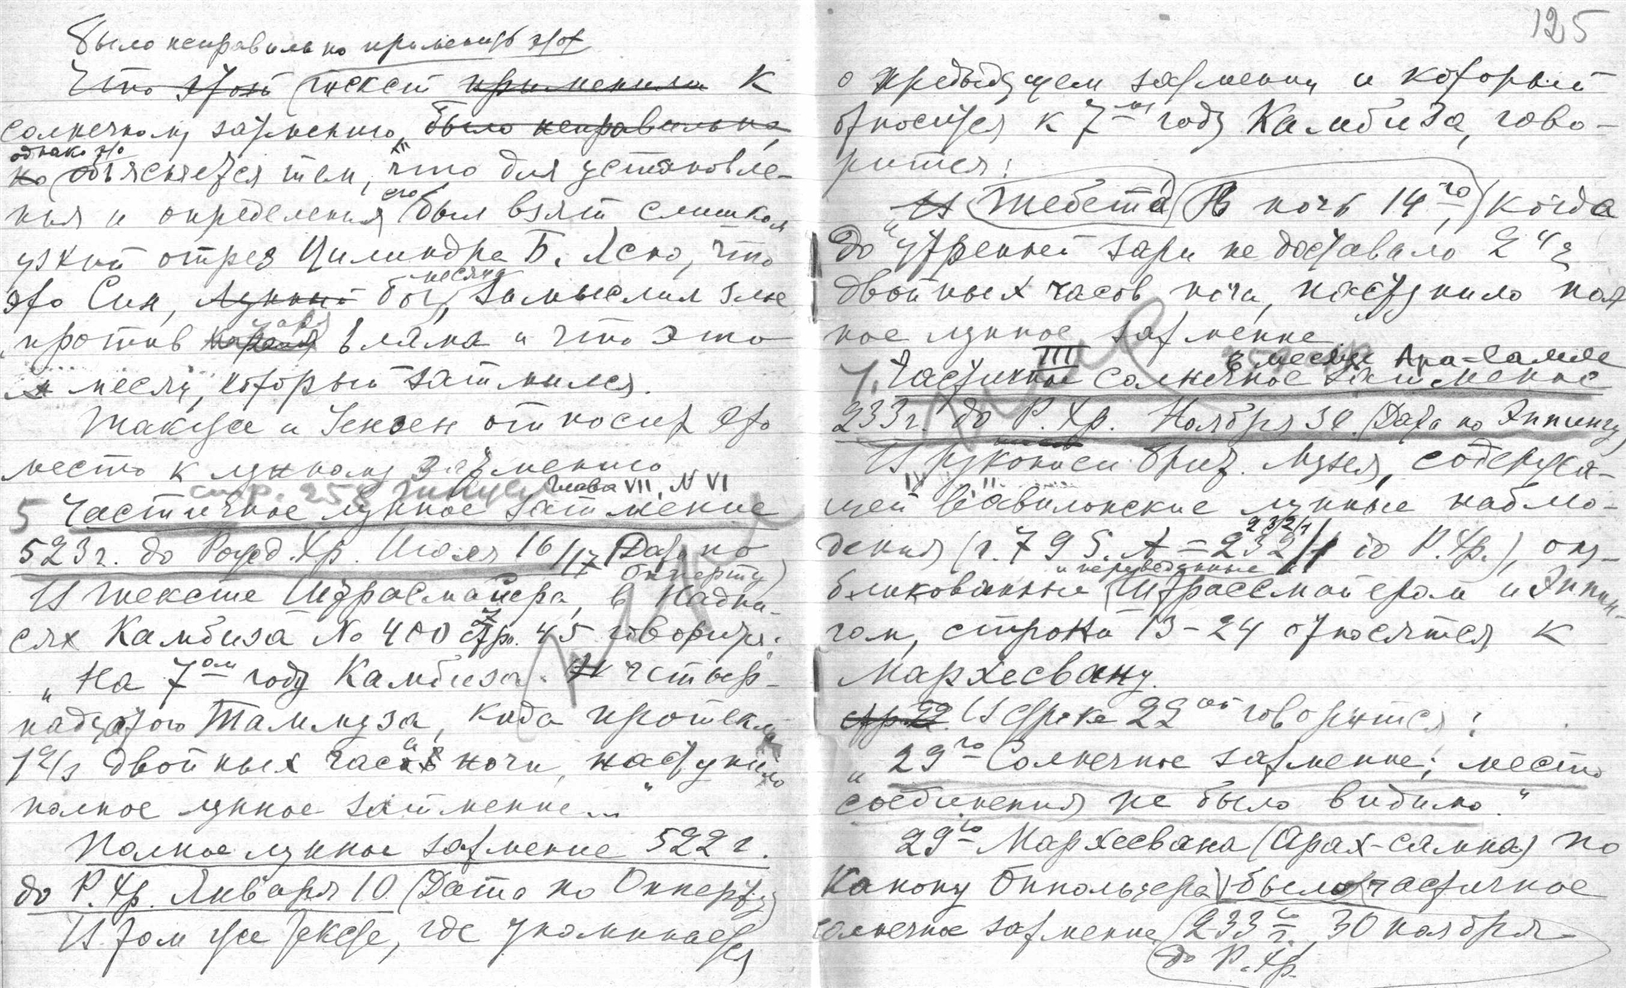 было неправильно применить этот
Что этот текст применили к
солнечному затмению, было неправильно,
однако это
но объясняется тем, что для установле-
ния и определения его был взят слишком
узкий отрез Цилиндра Б. Ясно, что
месяца
это Син, лунный бог, замыслил злое
против царя Элама и что это
месяц, который затмился.
Также и Йенсен относит это
место к лунному затмению
стр. 258 Глава VII, N VI
5 Частичное лунное затмение
523 г. до Рожд. Хр. Июля 16/17 (Дата по
Опперту)
В тексте Штрасмайера, в Надпи-
сях Камбиза No 400 стр. 45 говорится:
„На 7ом году Камбиза. четыр-
надцатого Таммуза, когда протекли
1 2/3 двойных часа ночи, наступило
полное лунное затмение..."
Полное лунное затмение 522 г.
до Р. Хр. Января 10 (Дата по Опперту)
В том же тексте, где упоминается
125
о предыдущем затмении и который
относится к 7му году Камбиза, гово-
рится:
„В ночь 14го Тебета когда
до утренней зари не доставало 2
двойных часов ночи, наступило пол
ное лунное затмение"
III в месяце Ара-Самна
7. Частичное солнечное затмение
233 г. до Р. Хр. Ноября 30 (Дата по Эппингу)
В рукописи Брит. Музея, содержа-
щей Вавилонские лунные наблю-
232/1
дения (г. 79 S. A = 232/1 до Р. Хр.), опу-
и переведенные
бликованные Штрассмайером и Эппин-
гом, строки 13-24 относятся к
Мархесвану.
стр. 22 В строке 22ой говорится:
„29го Солнечное затмение; место
соединения не было видимо."
29го Мархесвана (Арах-самна) по
Канону Оппольцера было частичное
солнечное затмение 233го г. 30 ноября
до Р. Хр.